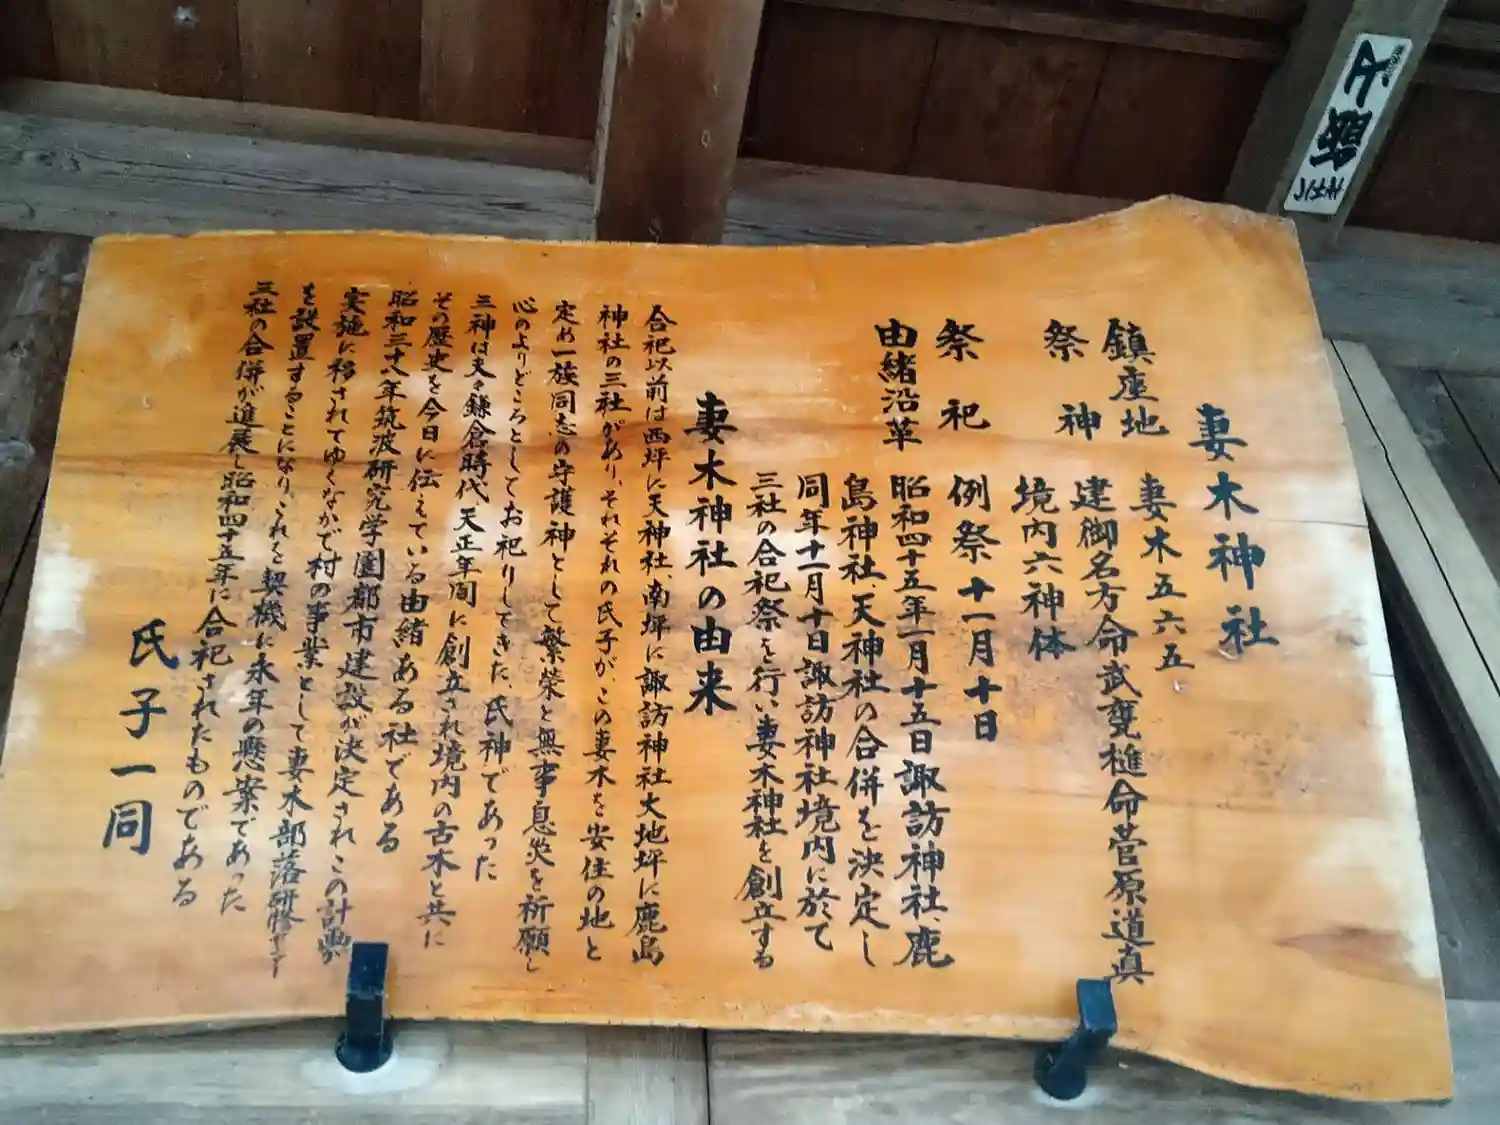 妻木神社
鎮座地 妻木五六五
祭神 建御名方命武甕槌命菅原道真
境内六神体
祭祀 例祭十一月十日
由緒沿革 昭和四十五年一月十五日諏訪神社、鹿
島神社、天神社の合併を決定し
同年十一月十日諏訪神社境内に於て
三社の合祀祭を行い妻木神社を創立する
妻木神社の由来
合祀以前は西坪に天神社、南坪に諏訪神社大地坪に鹿島
神社の三社があり、それぞれの氏子が、この妻木を安住の地と
定め一族同志の守護神として繁栄と無事息災を祈願し
心のよりどころとしてお祀りしてきた、氏神であった
三神は夫々鎌倉時代、天正年間に創立され境内の古木と共に
その歴史を今日に伝えている由緒ある社である
昭和三十八年筑波研究学園都市建設が決定されこの計画が
実施に移されてゆくなかで村の事業として妻木部落研修センター
を設置することになり、これを契機に永年の懸案であった
三社の合併が進展し昭和四十五年に合祀されたものである
氏子一同